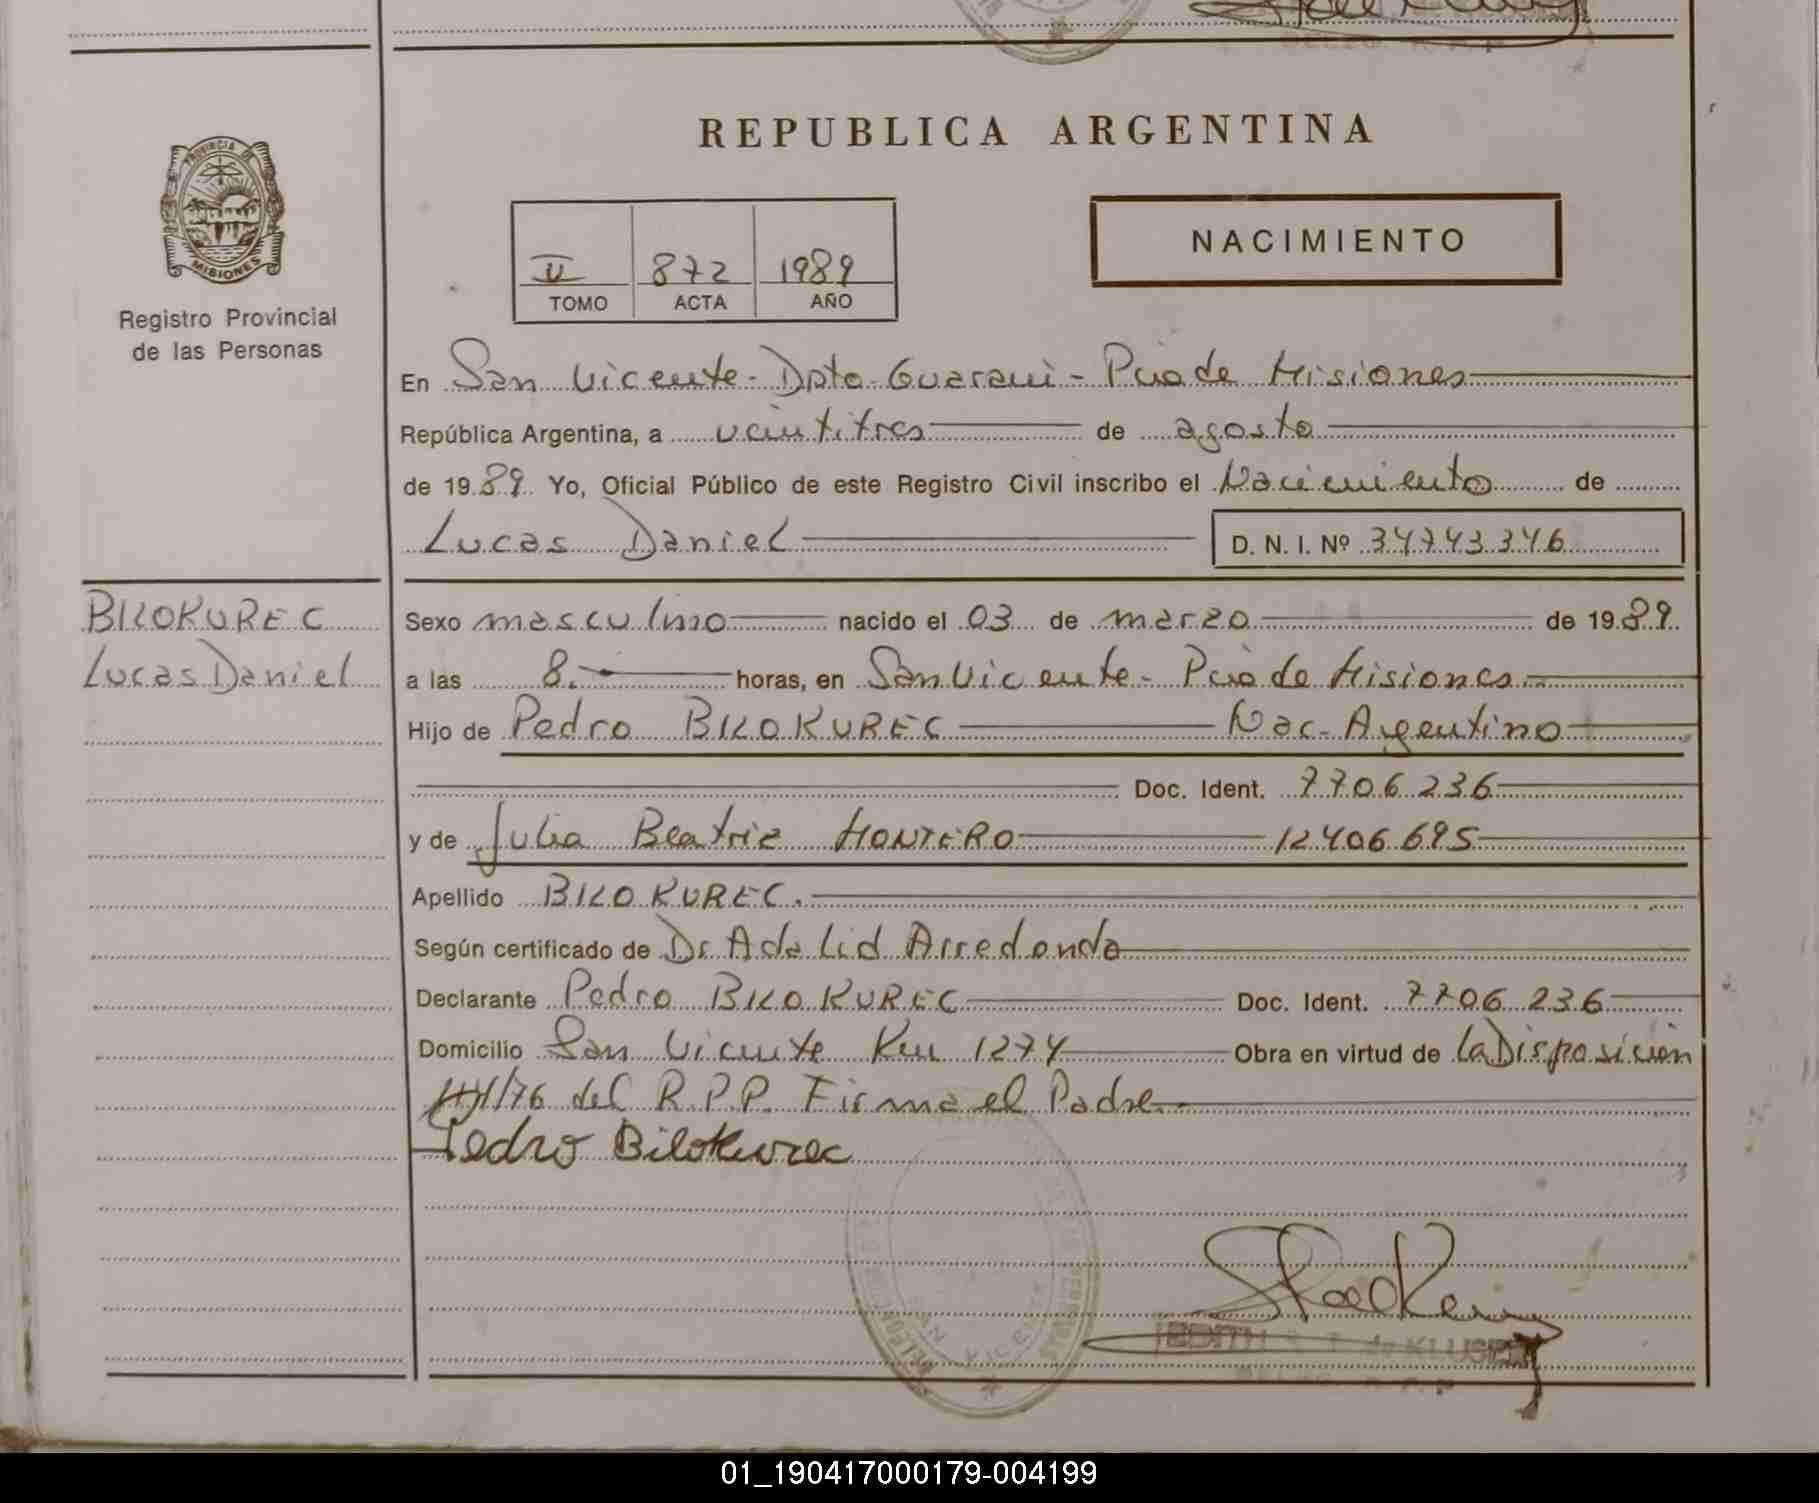 REPUBLICA ARGENTINA
PROVINCIA DE
MISIONES
Registro Provincial
de las Personas
II 872 1989
TOMO ACTA AÑO
NACIMIENTO
En San Vicente - Dpto Guarani - Pcia de Misiones
República Argentina, a veintitres de agosto
de 1989 Yo, Oficial Público de este Registro Civil inscribo el Nacimiento de
Lucas Daniel D. N. I. Nº 34743346
BILOKUREC
Lucas Daniel
Sexo masculino nacido el 03 de marzo de 1989
a las 8.- horas, en San Vicente - Pcia de Misiones
Hijo de Pedro BILOKUREC Nac. Argentino
Doc. Ident. 7706236
y de Julia Beatriz MONTERO 12406695
Apellido BILOKUREC.
Según certificado de Dr Adalid Arredondo
Declarante Pedro BILOKUREC Doc. Ident. 7706236
Domicilio San Vicente Km 1274 Obra en virtud de la Disposicion
/76 del R.P.P. Firma el Padre.-
Pedro Bilokurec
SAN VICENTE
EDITH T. de KLUSE
01_190417000179-004199